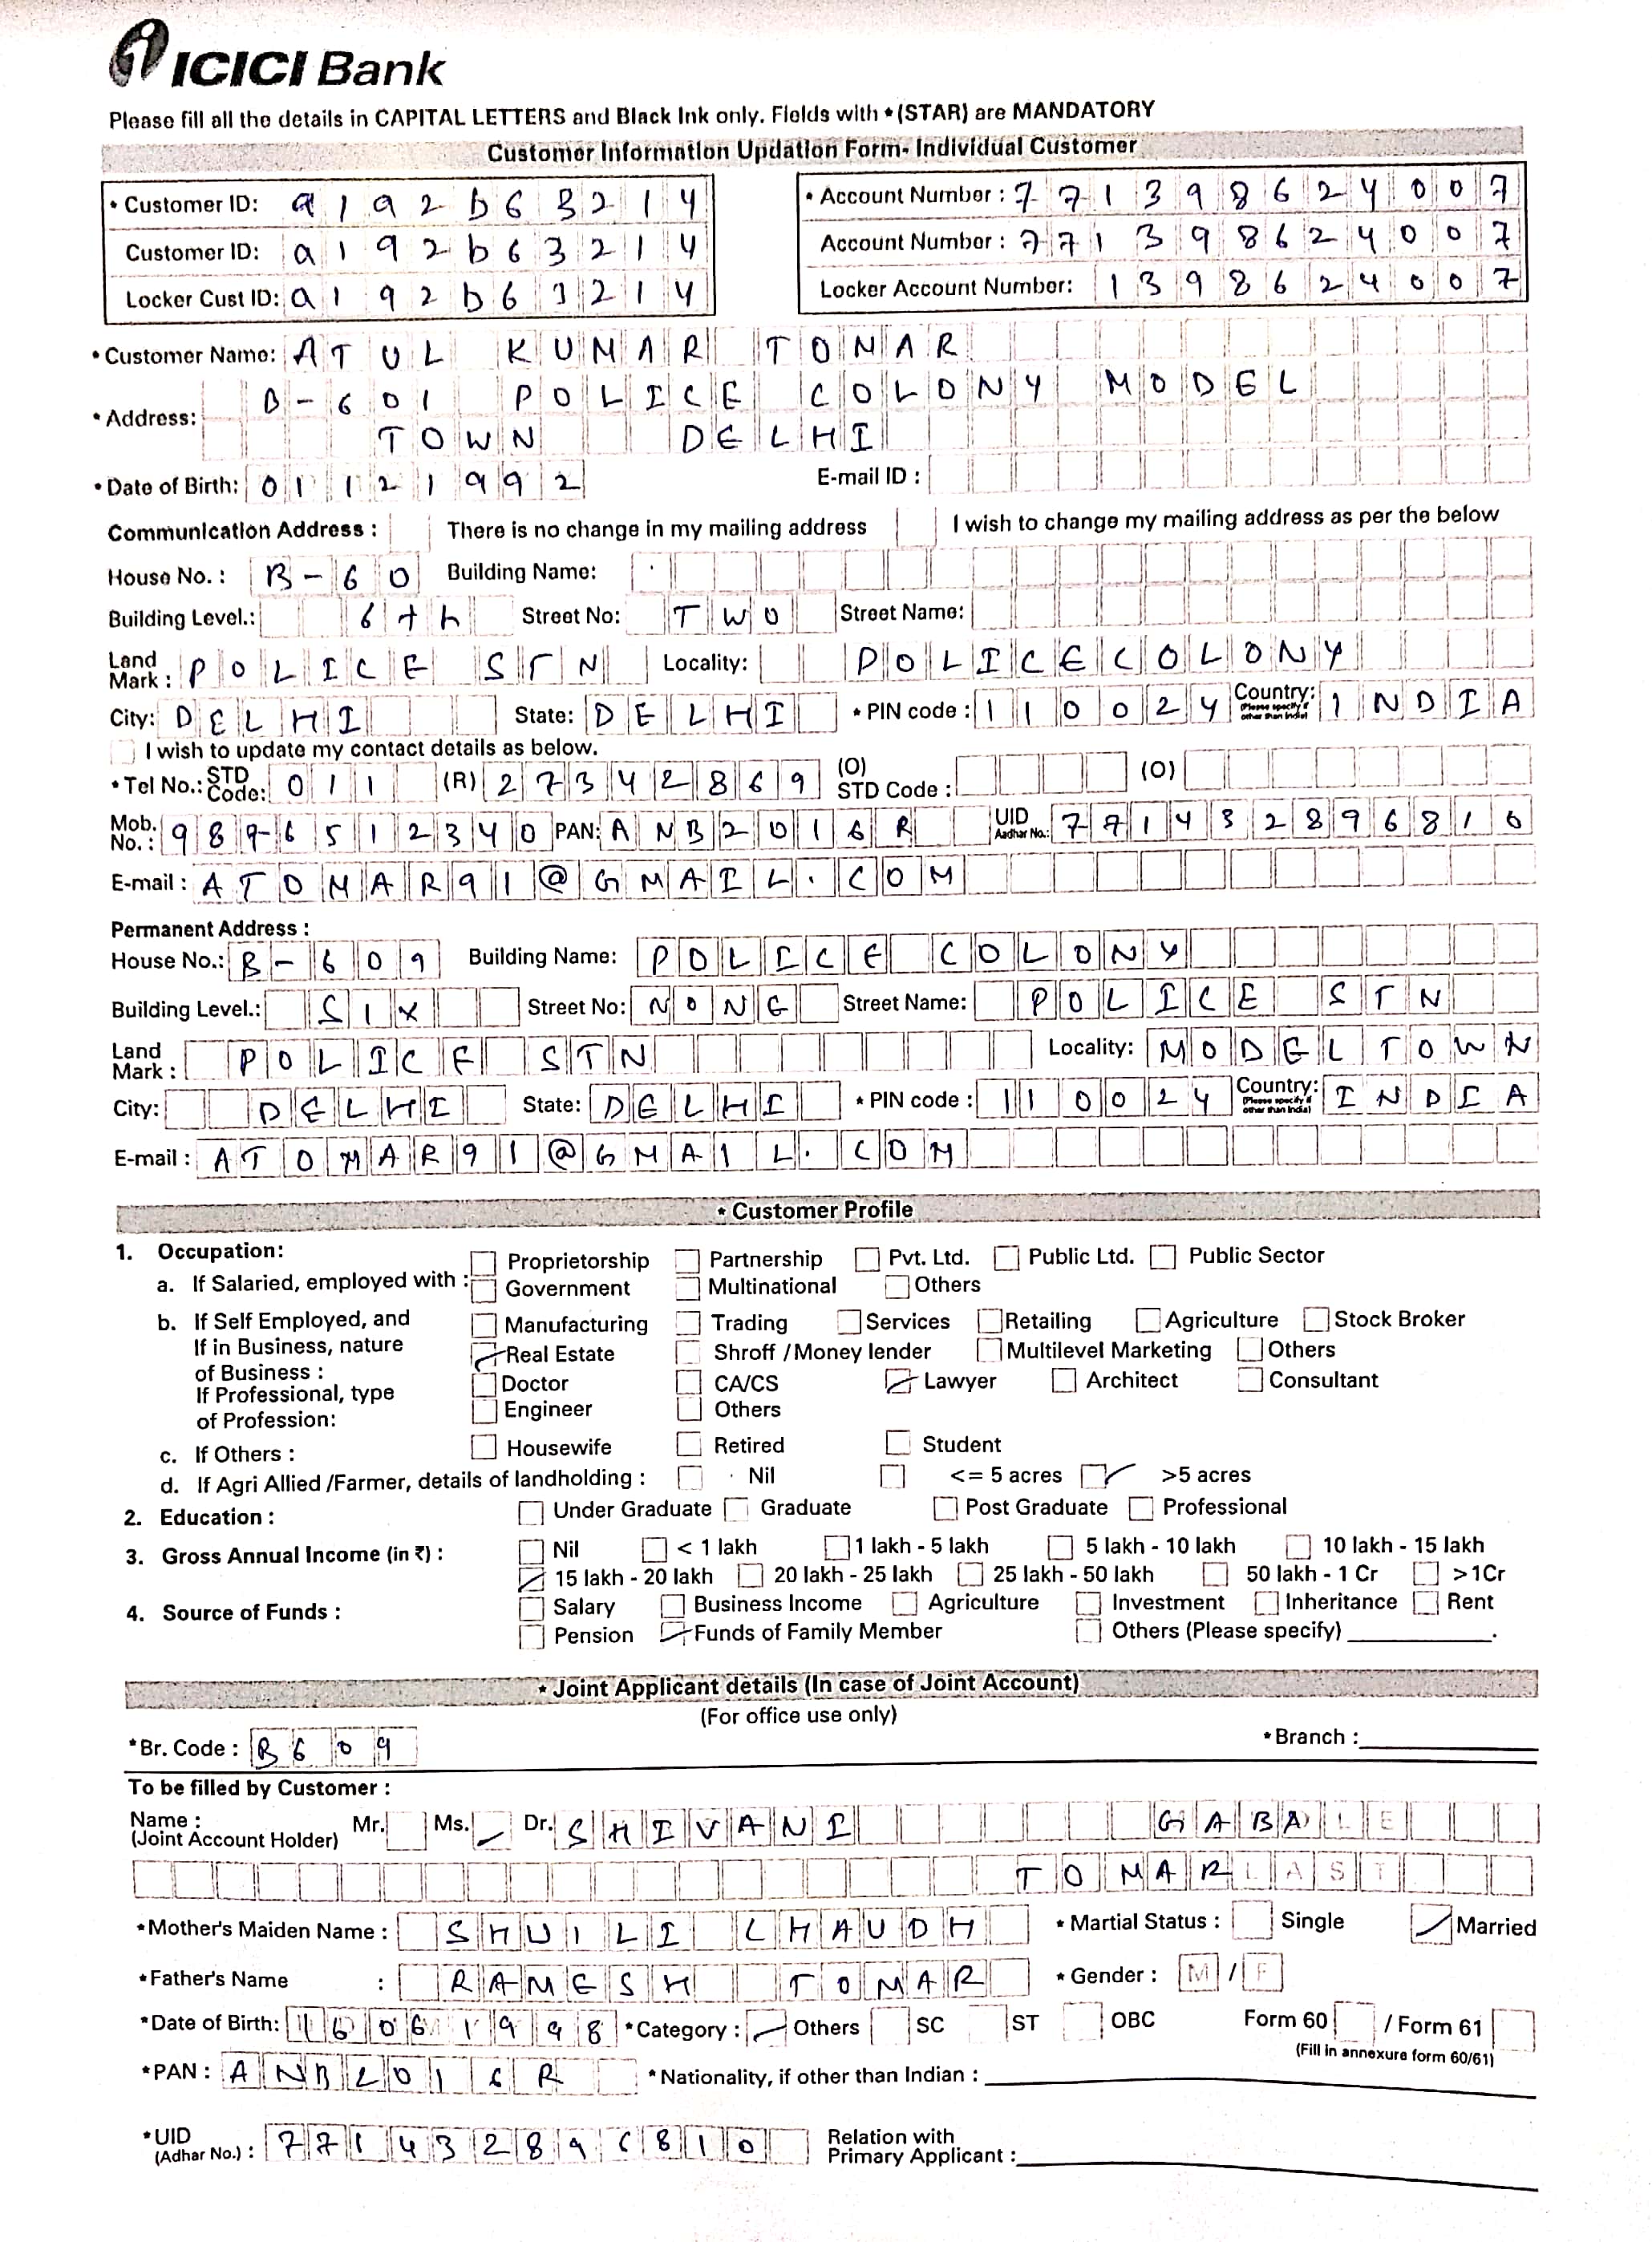 ICICI Bank
Please fill all the details in CAPITAL LETTERS and Black Ink only. Fields with * (STAR) are MANDATORY
Customer Information Updation Form- Individual Customer
* Customer ID: a192b63214 * Account Number : 771398624007
Customer ID: a192b63214 Account Number : 771398624007
Locker Cust ID: a192b63214 Locker Account Number: 1398624007
* Customer Name: ATUL KUMAR TOMAR
* Address: B-601 POLICE COLONY MODEL
TOWN DELHI
* Date of Birth: 01121992 E-mail ID :
Communication Address : There is no change in my mailing address I wish to change my mailing address as per the below
House No. : B-60 Building Name:
Building Level.: 6th Street No: TWO Street Name:
Land Mark : POLICE STN Locality: POLICECOLONY
City: DELHI State: DELHI * PIN code : 110024 Country: (Please specify if other than India) INDIA
I wish to update my contact details as below.
* Tel No.: STD Code: 011 (R) 27342869 (O) STD Code : (O)
Mob. No. : 9896512340 PAN: ANB2016R UID Aadhar No.: 771432896810
E-mail : ATOMAR91@GMAIL.COM
Permanent Address :
House No.: B-609 Building Name: POLICE COLONY
Building Level.: SIX Street No: NONE Street Name: POLICE STN
Land Mark : POLICE STN Locality: MODEL TOWN
City: DELHI State: DELHI * PIN code : 110024 Country: (Please specify if other than India) INDIA
E-mail : ATOMAR91@GMAIL.COM
* Customer Profile
1. Occupation: Proprietorship Partnership Pvt. Ltd. Public Ltd. Public Sector
a. If Salaried, employed with : Government Multinational Others
b. If Self Employed, and Manufacturing Trading Services Retailing Agriculture Stock Broker
If in Business, nature Real Estate Shroff /Money lender Multilevel Marketing Others
of Business :
If Professional, type Doctor CA/CS Lawyer Architect Consultant
of Profession: Engineer Others
c. If Others : Housewife Retired Student
d. If Agri Allied /Farmer, details of landholding : Nil <= 5 acres >5 acres
2. Education : Under Graduate Graduate Post Graduate Professional
3. Gross Annual Income (in ₹) : Nil < 1 lakh 1 lakh - 5 lakh 5 lakh - 10 lakh 10 lakh - 15 lakh
15 lakh - 20 lakh 20 lakh - 25 lakh 25 lakh - 50 lakh 50 lakh - 1 Cr >1Cr
4. Source of Funds : Salary Business Income Agriculture Investment Inheritance Rent
Pension Funds of Family Member Others (Please specify)
* Joint Applicant details (In case of Joint Account)
(For office use only)
*Br. Code : B609 * Branch :
To be filled by Customer :
Name : (Joint Account Holder) Mr. Ms. Dr. SHIVANI GABALE
TOMAR LAST
*Mother's Maiden Name : SHUILI CHAUDH * Martial Status : Single Married
*Father's Name : RAMESH TOMAR * Gender : M / F
*Date of Birth: 16061998 *Category : Others SC ST OBC Form 60 / Form 61
(Fill in annexure form 60/61)
*PAN : ANB2016R *Nationality, if other than Indian :
*UID (Adhar No.) : 771432896810 Relation with Primary Applicant :